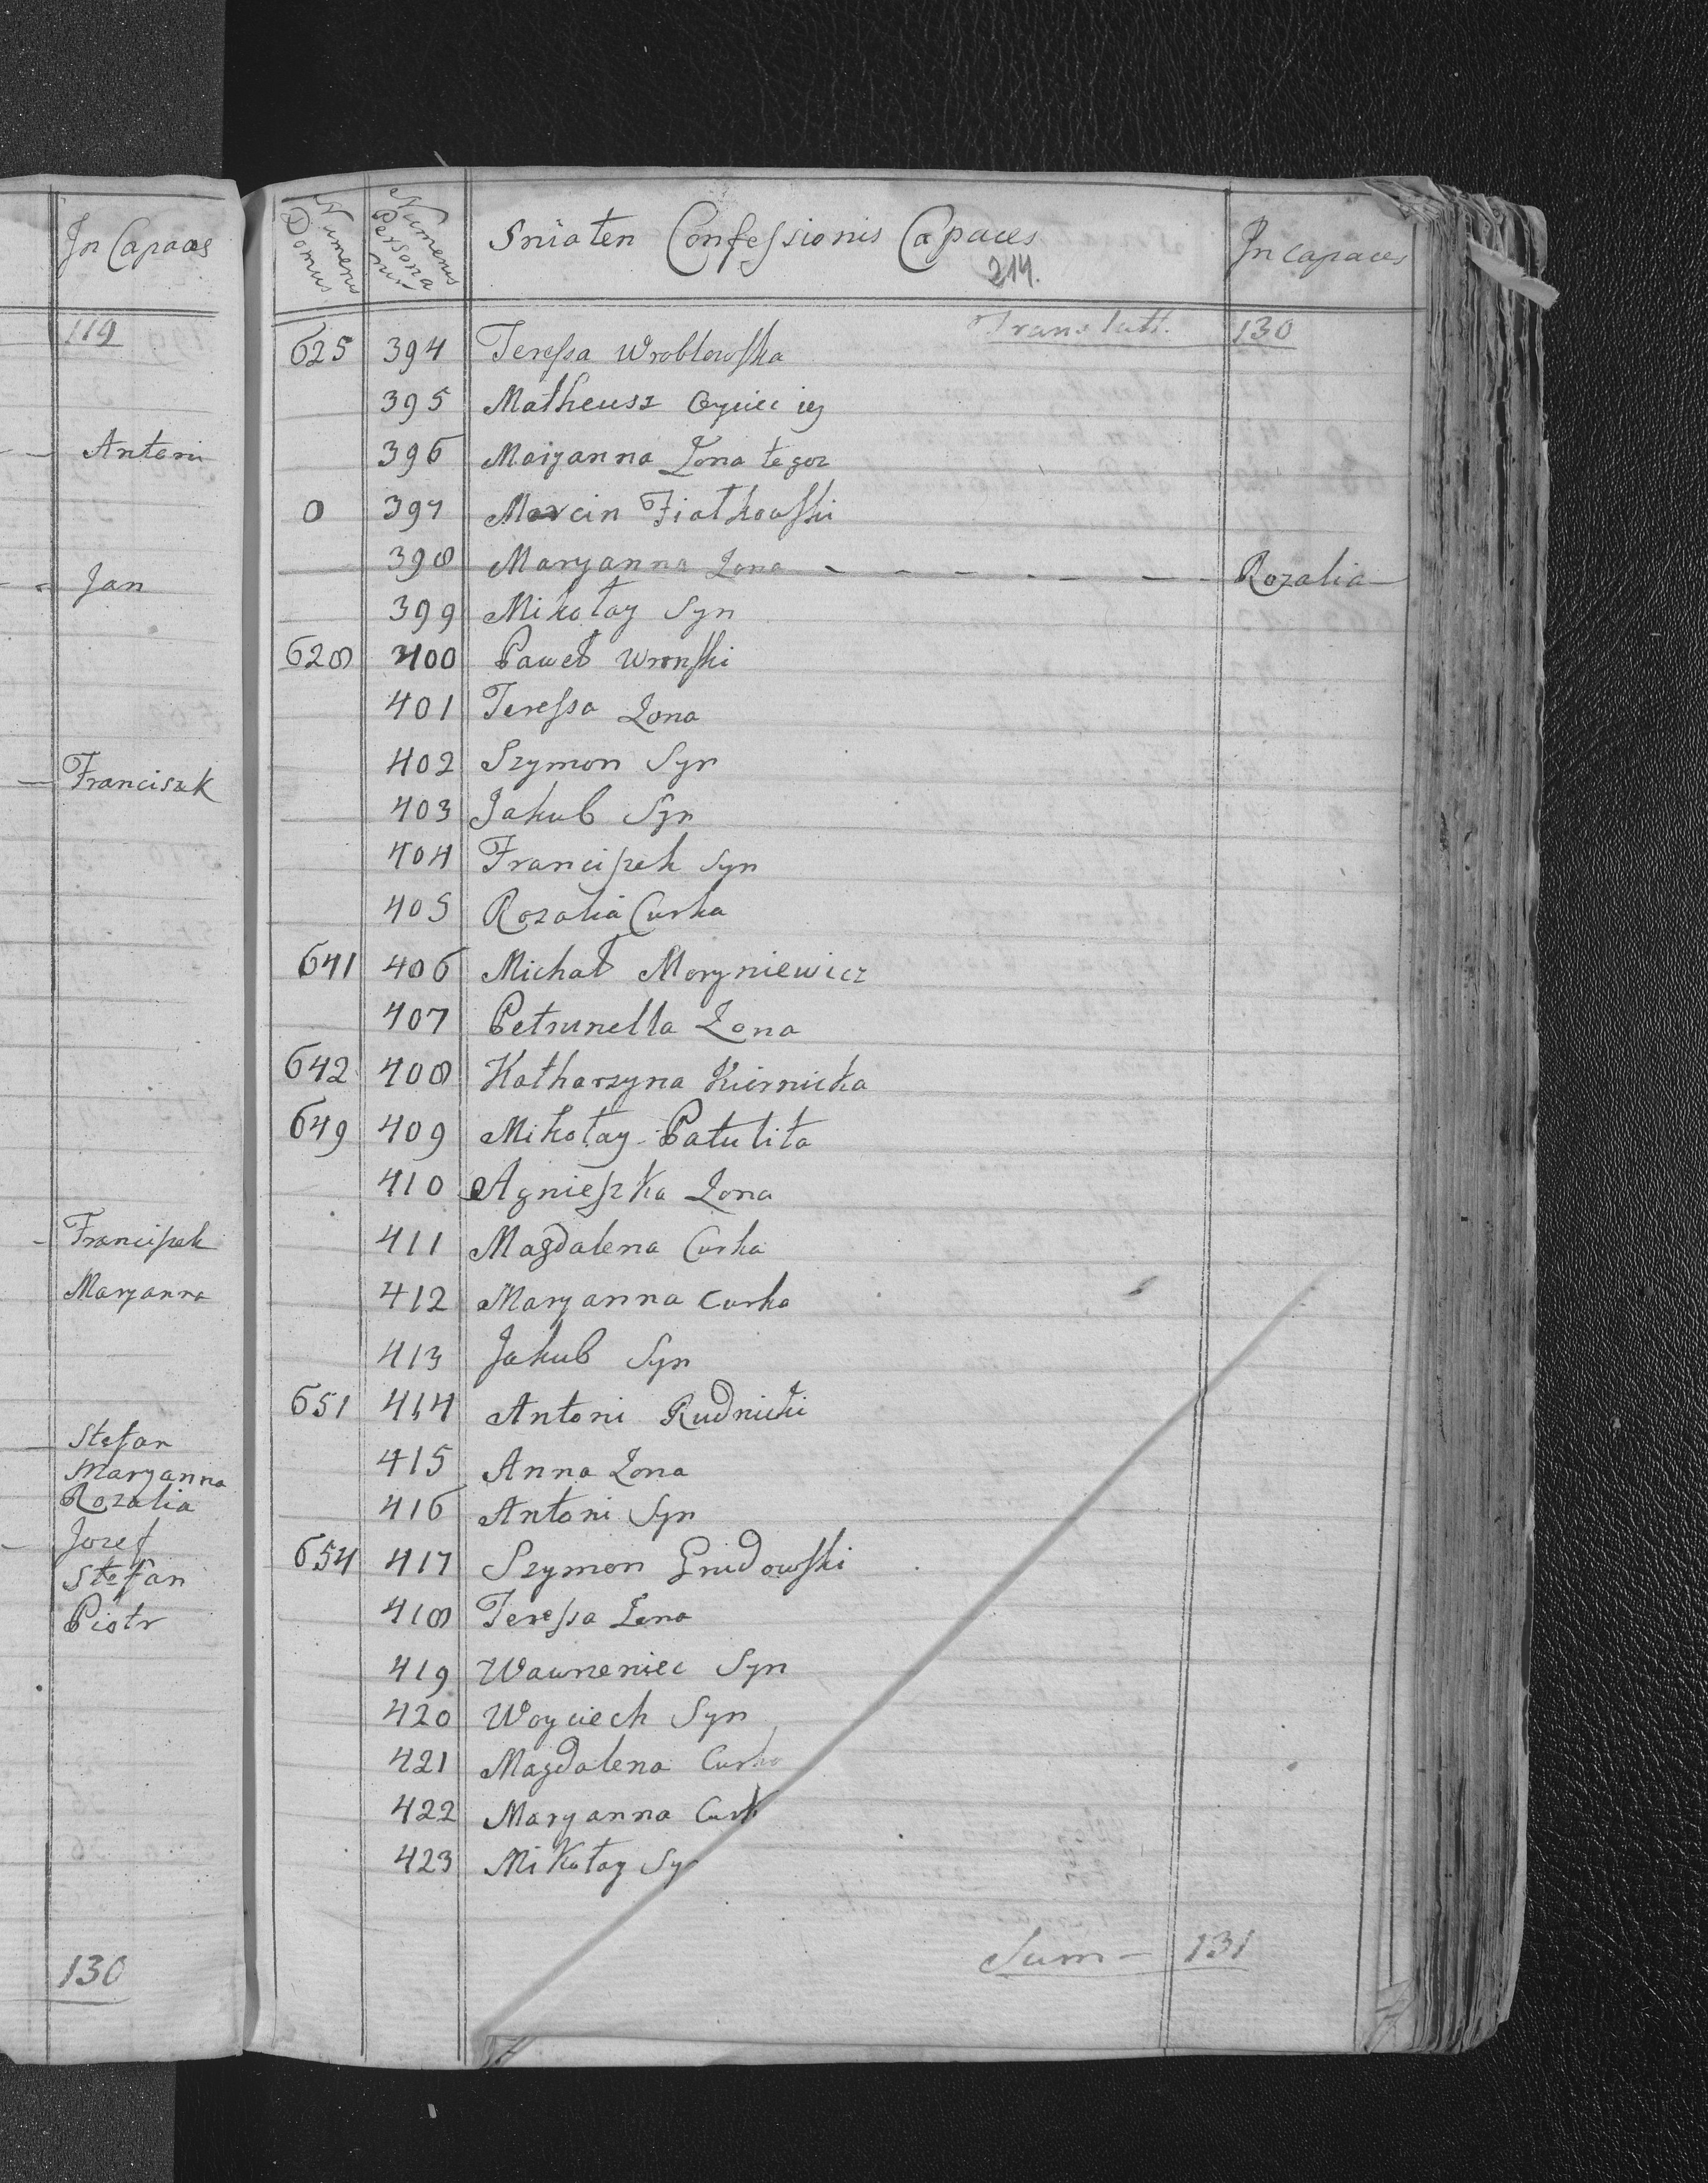 In Capaces
119
Antoni
Jan
Franciszk
Franciszek
Maryanna
Stefan
Maryanna
Rozalia
Jozef
Stefan
Piotr
130
Numerus Domus
Numerus Personarum
Sniaten Confessionis Capaces
In capaces
214.
Translatt. 130
625 394 Teressa Wroblowska
395 Matheusz Oyciec iey
396 Maryanna Zona tegoz
0 397 Marcin Fiatkowski
398 Maryanna Zona - - - - - - - Rozalia
399 Mikołay Syn
628 400 Paweł Wronski
401 Teressa Zona
402 Szymon Syn
403 Jakub Syn
404 Franciszek Syn
405 Rozalia Curka
641 406 Michał Moryniewicz
407 Petrunella Zona
642 408 Katharzyna Kiernicka
649 409 Mikołay Patulita
410 Agnieszka Zona
411 Magdalena Curka
412 Maryanna Curka
413 Jakub Syn
651 414 Antoni Rudnicki
415 Anna Zona
416 Antoni Syn
654 417 Szymon Grudowski
418 Teressa Zona
419 Wawrzeniec Syn
420 Woyciech Syn
421 Magdalena Curka
422 Maryanna Curk
423 Mikołay Sy
Sum - 131